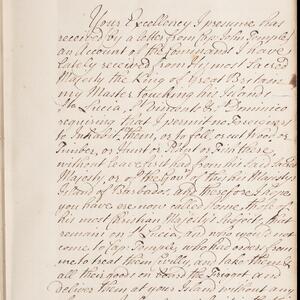 Your Excellency I presume has
received by a letter from Cap. John Temple
an account of the Commands I have
lately received from his most Sacred
Majesty the King of Great Britain
my Master touching his Islands
Sta. Lucia, St. Vincent & Dominico
requiring that I permit no Foreigners
to Inhabit them, or to fell or cut wood or
Timber, or Hunt or Fish or Turn there
without leave first had from his said Sacred
Majesty, or of the Gov.r of this his Majesty's
Island of Barbados and therefore I hope
you have ere now called home those of
his most Christian Majesty's Subjects that
remain on St. Lucia, and who would not
come to Cap. Temple, who had orders from
me to treat them Civilly, and take them &
all their goods on board the Frigot and
deliver them at your Island without any